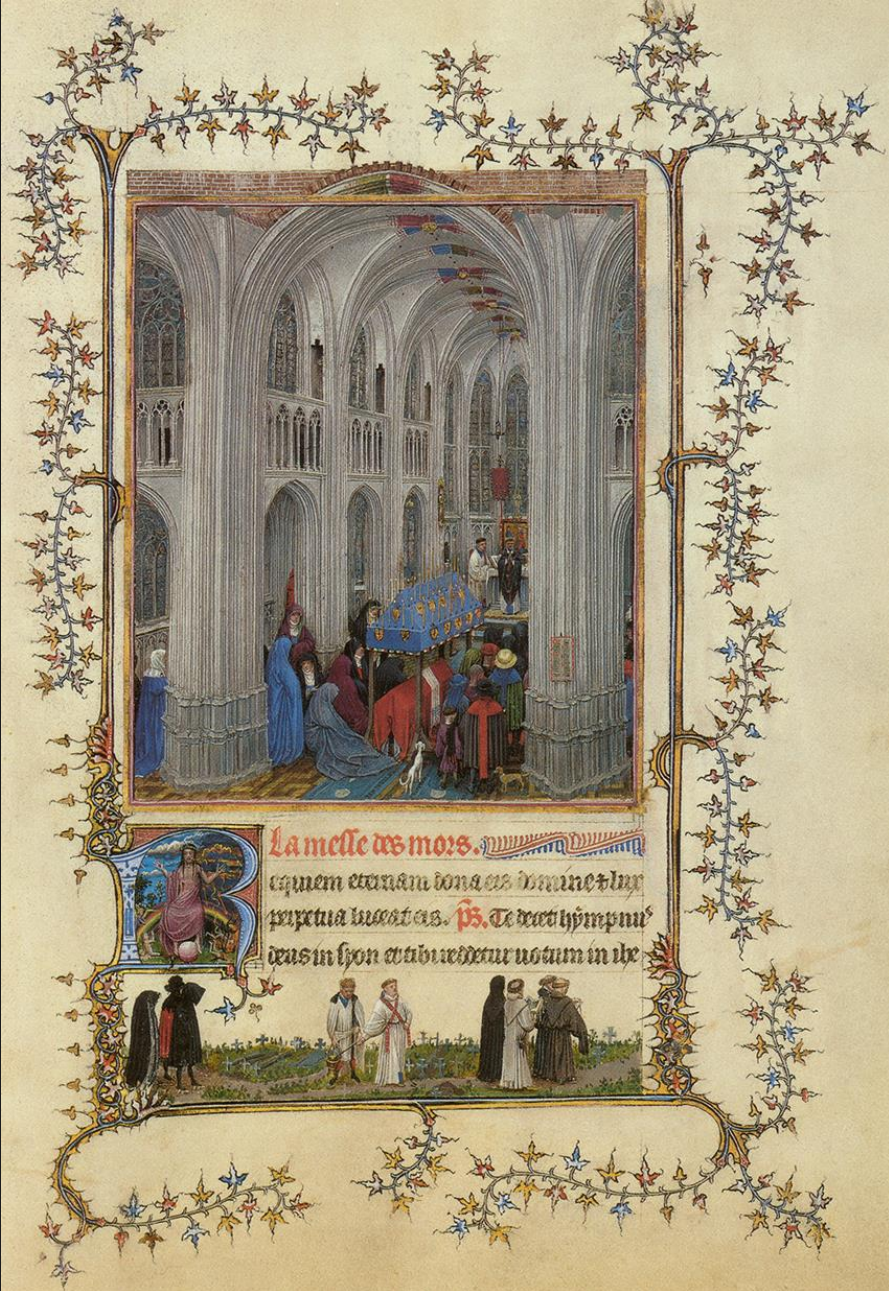 La messe des mors.
Requiem eternam dona eis domine & lux
perpetua luceat eis. ps. Te decet hȳmpnus
deus in syon et tibi reddetur uotum in ihe